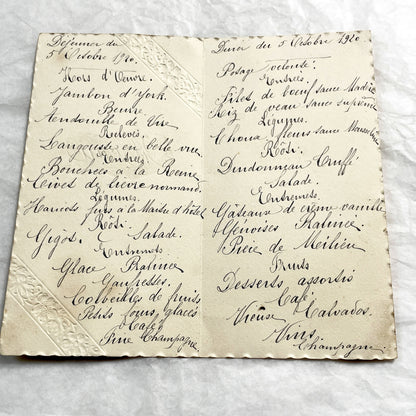 Déjeuner du
5 Octobre 1920.
Hors d'Œuvre.
Jambon d'York.
Beurre
Andouille de Vire
Relevés.
Langouste en belle vue
Entrées.
Bouchées à la Reine
Civet de lièvre normand.
Légumes.
Haricots fins à la Maître d'hôtel
Rôti.
Gigot. Salade.
Entremets
Glace Pralinée
Gaufrettes.
Corbeilles de fruits
Petits fours glacés
Café
Fine Champagne
Diner du 5 Octobre 1920
Potage velouté.
Entrées.
Filet de bœuf sauce Madère
Riz de veau sauce suprême
Légumes.
Choux fleurs sauce
Rôti.
Dindonneau Truffé
Salade.
Entremets.
Gâteaux de crème vanille
Génoises Pralinée
Pièce de Milieu
Fruits
Desserts assortis
Café.
Vieux Calvados.
Vins
Champagne.